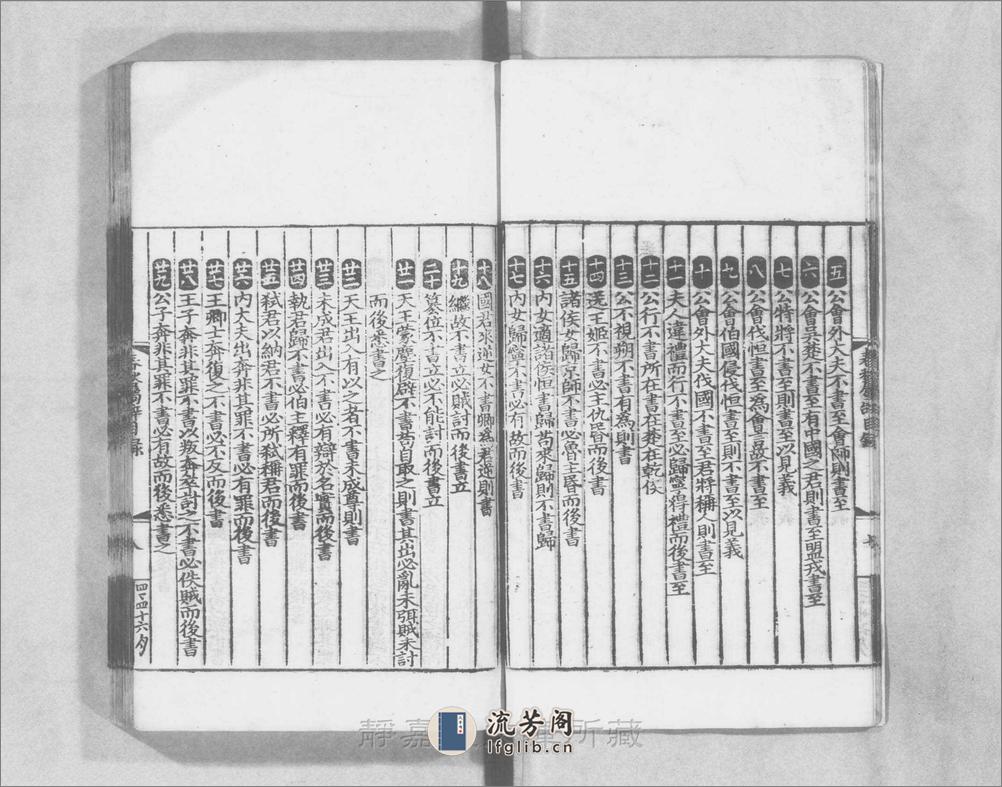 五 公會外大夫不書至會師則書至
六 公會吳楚不書至有中國之君則書至盟戎書至
七 公特將不書至則書至以見義
八 公會伐恒書至為會言故不書至
九 公會伯國侵伐恒書至則不書至以見義
十 公會外大夫伐國不書至君將稱人則書至
十一 夫人違禮而行不書至必歸寧得禮而後書至
十二 公行不書所在書在楚在乾侯
十三 公不視朔不書有為則書
十四 逆王姬不書必主仇昏而後書
十五 諸侯女歸京師不書必魯主昏而後書
十六 內女適諸侯恒書歸苟來歸則不書歸
十七 內女歸寧不書必有故而後書
十八 國君求逆女不書卿為君逆則書
十九 繼故不書立必賊討而後書立
二十 篡位不書立必不能討而後書立
廿一 天王蒙塵復辟不書苟自取之則書其出必亂未弭賊未討
而後悉書之
廿二 天王出入有以之者不書未成尊則書
廿三 未成君出入不書必有辯於名實而後書
廿四 執君歸不書必伯主釋有罪而後書
廿五 弒君以納君不書必所弒稱君而後書
廿六 內大夫出奔非其罪不書必有罪而後書
廿七 王卿士奔復之不書必不反而後書
廿八 王子奔非其罪不書以叛奔卒討之不書必佚賊而後書
廿九 公子奔非其罪不書必有故而後悉書之
八
四百四十六
靜嘉
所藏
流芳阁
lfglib.cn